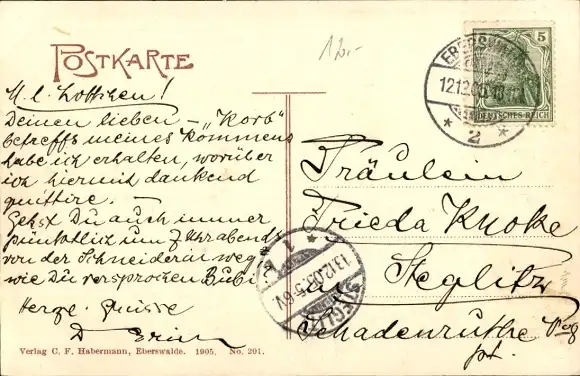 POSTKARTE
12.-
M. l. Lottchen!
Deinen lieben – „Korb"
betreffs meines Kommens
habe ich erhalten, worüber
ich hiermit dankend
quittire. –
Gehst Du auch immer
pünktlich um 7 Uhr abends
von der Schneiderin weg
wie Du versprochen
Herzl. Grüsse
D
EBERSWALDE
12.12.05
* 2 *
5
DEUTSCHES REICH
Fräulein
Frieda Knoke
in Steglitz
STEGLITZ
13.12.05
Verlag C. F. Habermann, Eberswalde. 1905. No. 201.